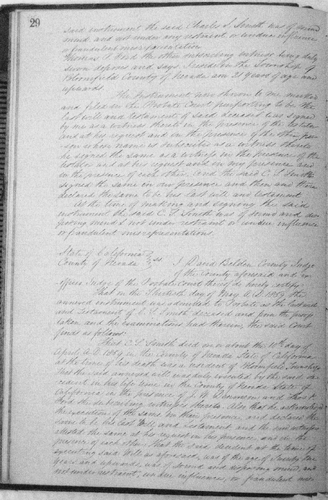 29
said instrument the said Charles S. Smith was of sound
mind and not under any restraint or undue influence
or fraudulent misrepresentation
Thomas P. Ford the other subscribing witness being duly
sworn deposes and says I reside in the Township of
Bloomfield County of Nevada am 21 years of age and
upwards.
The instrument now shown to me marked
and filed in the Probate Court purporting to be the
last will and testament of said deceased was signed
by me as a witness thereto in the presence of the testator
and at his request and in the presence of the other person
whose name is subscribed as a witness thereto
he signed the same as a witness in the presence of the
testator and at his request and in my presence and
in the presence of each other and the said C. S. Smith
signed the same in our presence and then and there
declared the same to be his last will and testament
At the time of making and signing the said
instrument the said C. S. Smith was of sound and disposing
mind & not under restraint or undue influence
or fraudulent misrepresentations.
State of California
County of Nevada ss
I David Belden County Judge
of the County aforesaid and ex
officio Judge of the Probate Court thereof do hereby certify
That on the day of May A.D. 1859 the
annexed instrument was admitted to Probate as the last will
and testament of C. S. Smith deceased and from the proofs
taken and the examinations had therein the said Court
finds as follows:
That C. S. Smith died on or about the 10th day of
April A.D. 1859 in the County of Nevada State of California
at the time of his death was a resident of Bloomfield Township
That the said annexed will was duly executed by the said deceased
in his life time in the County of Nevada State of
California in the presence of and Thos P.
Ford the subscribing witnesses thereto. Also that he acknowledged
the execution of the same in their presence and declared the
same to be his last will and testament and the said witnesses
attested the same at his request in his presence and in the
presence of each other. That the said deceased at the time of
executing said Will as aforesaid, was of the age of twenty one
years and upwards, was of sound and disposing mind, and
not under restraint, undue influence, or fraudulent mis